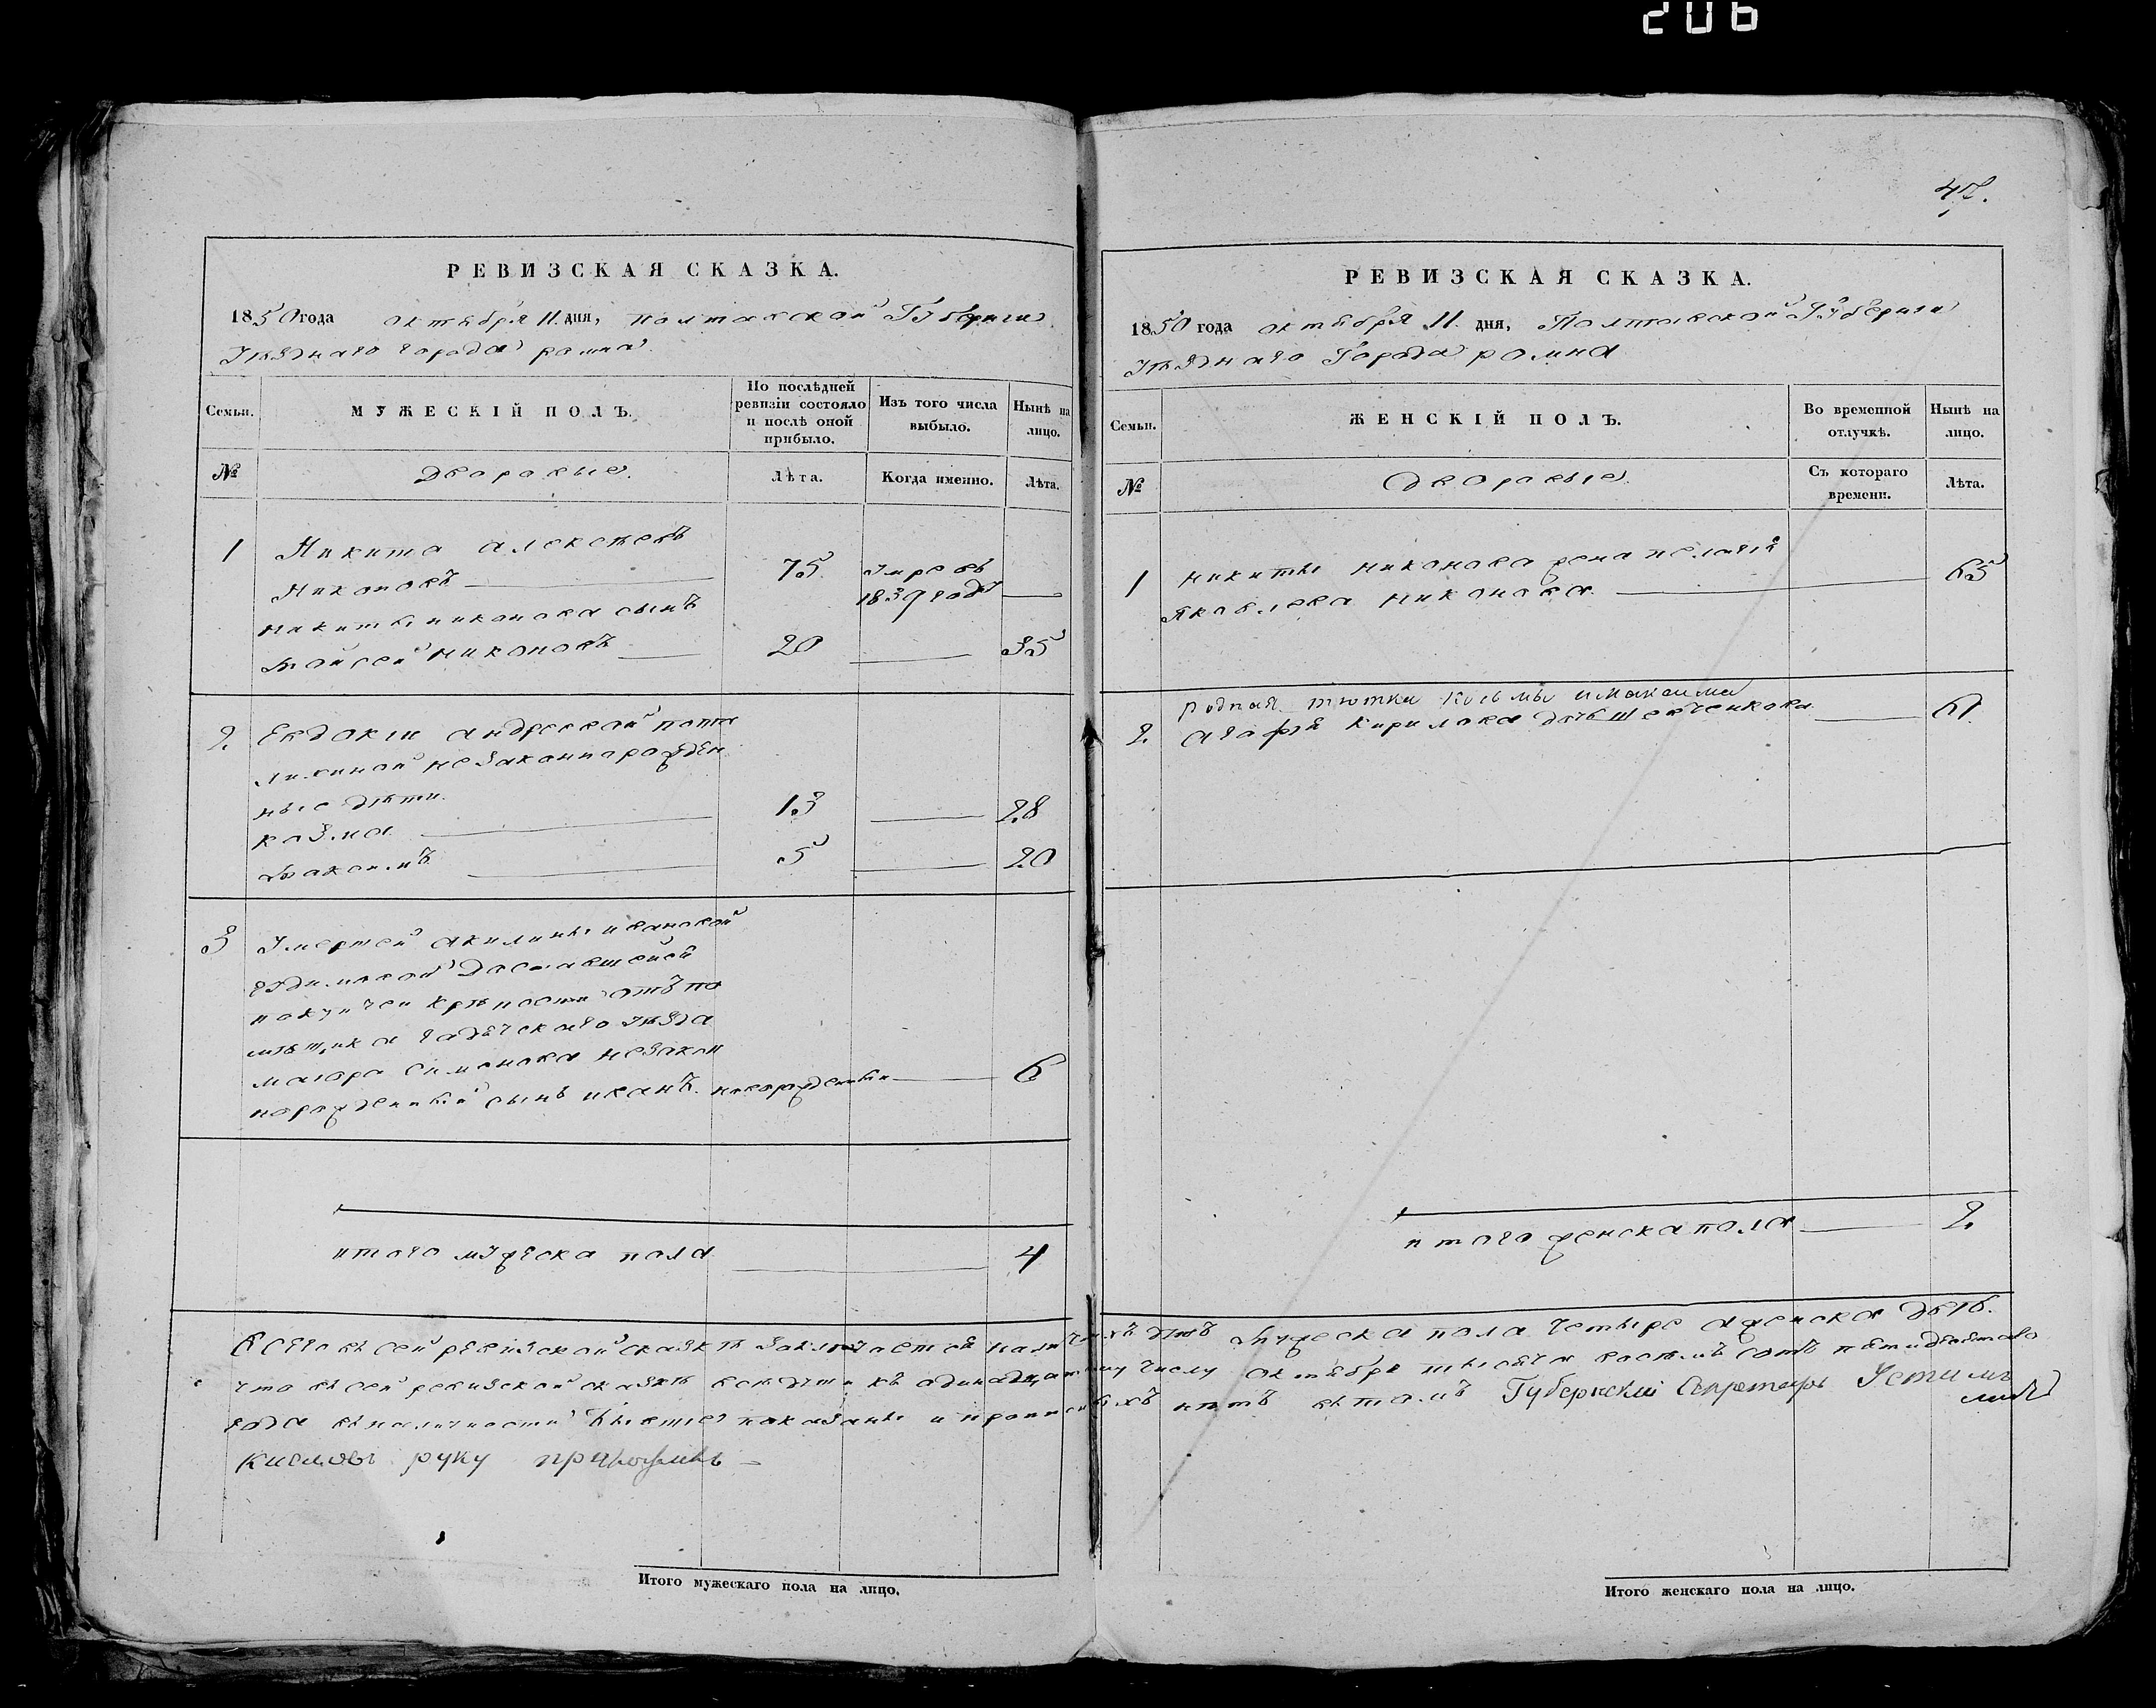 206
47.
РЕВИЗСКАЯ СКАЗКА.
1850 года октября 11. дня, полтавской Губернии
Уѣзднаго города ромна.
Семьи.
МУЖЕСКІЙ ПОЛЪ.
По послѣдней ревизіи состояло и послѣ оной прибыло.
Изъ того числа выбыло.
Нынѣ на лицо.
№
Дворовые.
Лѣта.
Когда именно.
Лѣта.
1 Никита алексѣевъ
Никоновъ 75. умре въ
1839 году
Никиты никонова сынъ
Мойсей никоновъ 20 35
2. Евдокіи андреевой
незаконнорожден
ные дѣти.
козма 13 28
Максимъ 5 20
3 Умершей акилины ивановой
доставшейся
покупчей крѣпости отъ по
мѣщика гадячскаго уѣзда
маіора симонова незакон
норожденный сынъ иванъ. новорожденный 6
итого мужеска пола 4
РЕВИЗСКАЯ СКАЗКА.
1850 года октября 11. дня, Полтавской Губернии
уѣзднаго Города ромна
Семьи.
ЖЕНСКІЙ ПОЛЪ.
Во временной отлучкѣ.
Нынѣ на лицо.
№
Дворовые.
Съ котораго времени.
Лѣта.
1 никиты никонова жена пелагія
яковлева никонова 65
родная тютка козьмы и максима
2. агафія кирилова дочь шевченкова 61
итого женска пола 2.
Всего въ сей ревизской сказкѣ заключается наличныхъ душъ мужеска пола четыре а женска двѣ.
что въ сей ревизской сказкѣ всѣ души къ одинадцатому числу октября тысяча восемъ сотъ пятидесятаго
года въ наличности бывшие показаны и прописныхъ нѣтъ въ томъ Губернский Секретарь Устимъ
руку приложилъ
Итого мужескаго пола на лицо.
Итого женскаго пола на лицо.